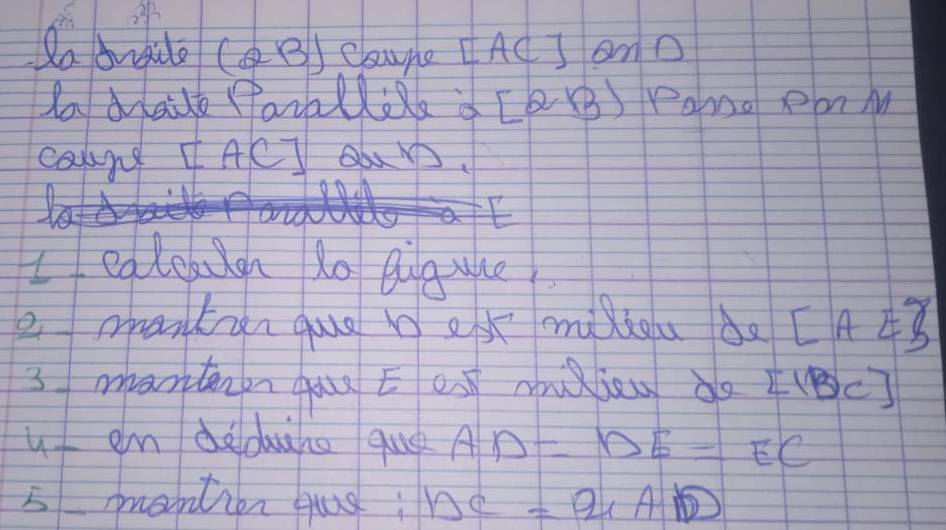 la droite (QB) coupe [AC] en D
la droite Parallèle à [QB) Passe Par M
coupe [AC] en D.
la droite Parallèle à E
1 - calculer la figure.
2 - montrer que D est milieu de [AE]
3 - manterer que E est milieu de [BC]
4 - en déduire que AD = DE = EC
5 - montrer que : DC = 2, AD